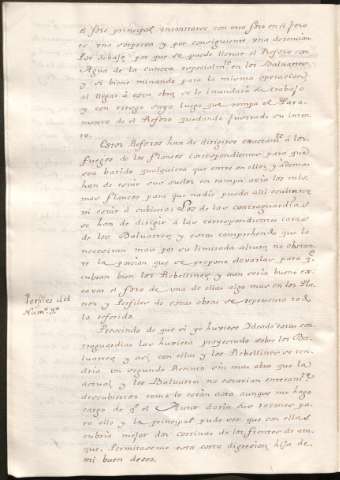 el foso principal encontrarse con otro foso en el foso
es una sorpresa y por consiguiente una detencion
por debajo por que se puede llenar el Refoso con
Agua de la cunera especialm.te en los Baluartes
y si biene minando para la misma operacion
al llegar á esta obra se le inundará su trabajo
y con riesgo suyo luego que rompa el Para-
mento de el Refoso quedando frustrado su inten-
to.
Estos Refosos han de dirigirse exactam.te á los
fuegos de los flancos correspondientes para que
sea batido qualquiera que entre en ellos, y ademas
han de estar sus suelos en rampa acia los mis-
mos flancos para que nadie pueda alli ocultarse
ni estar á cubierto. Los de las contraguardias
se han de dirigir á las correspondientes caras
de los Baluartes, y estas comprehendo que lo
necesitan mas por su limitada altura no obstan-
te la porcion que se propone elevarlas para q.e
cubran bien los Rebellines, y aun seria bueno ex-
cavar el foso de una de ellas algo mas en los Pla-
nos y Perfiles de estas obras se representa toda
la referida.
Perfiles del
Num.o 3.o
Prescindo de que si yo huviese Ideado estas con-
traguardias las huviera proyectado sobre los Ba-
luartes y asi con ellas y los Rebellines se ten-
dria un segundo Recinto sin mas obra que la
actual, y los Baluartes no estarian enteram.te
descubiertos como lo están ahora aunque me hago
cargo de q.e el Autor daria sus razones pa-
ra ello y la principal pudo ser que con ellas
cubria mejor dos cortinas de los frentes de ata-
que. Permitaseme esta corta digresion hija de
mi buen deseo.